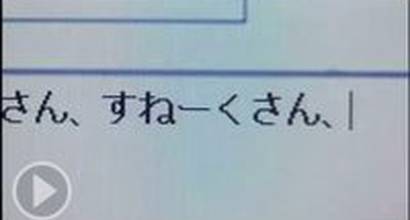 さん、すねーくさん、